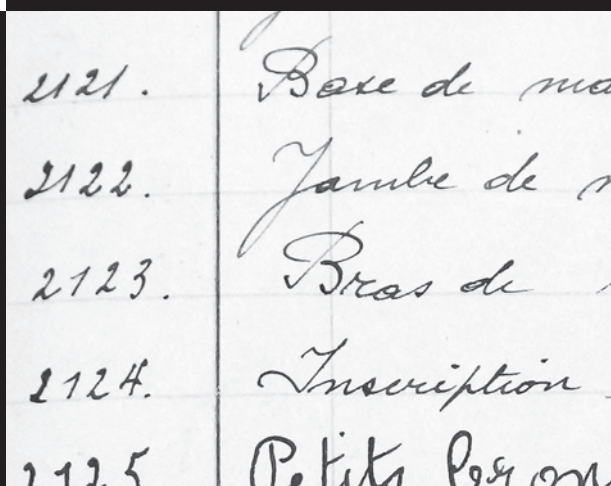 2121. Base de ma
2122. Jambe de
2123. Bras de
2124. Inscription
2125 Petits bron